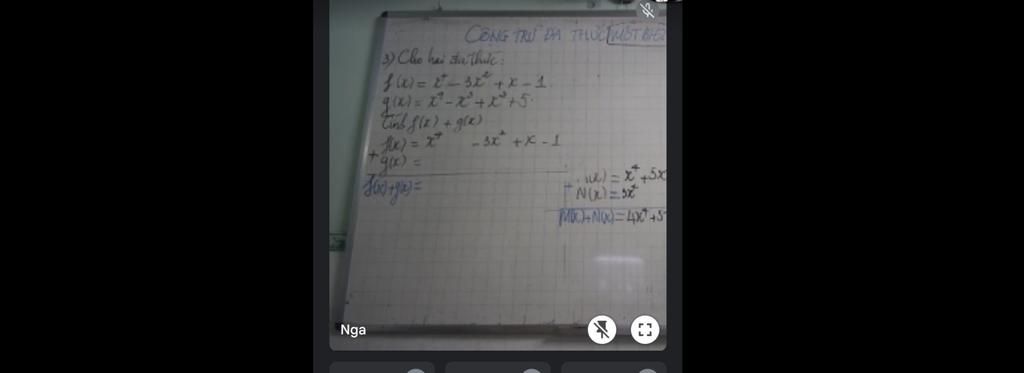 CỘNG TRỪ ĐA THỨC MỘT BIẾ
3) Cho hai đa thức:
f(x) = x⁴ - 3x² + x - 1.
g(x) = x⁴ - x³ + x² + 5.
Tính f(x) + g(x)
f(x) = x⁴ - 3x² + x - 1
+
g(x) =
f(x)+g(x) =
(x) = x⁴ + 5x
+
N(x) = 3x⁴
M(x)+N(x) = 4x⁴ + 5
Nga